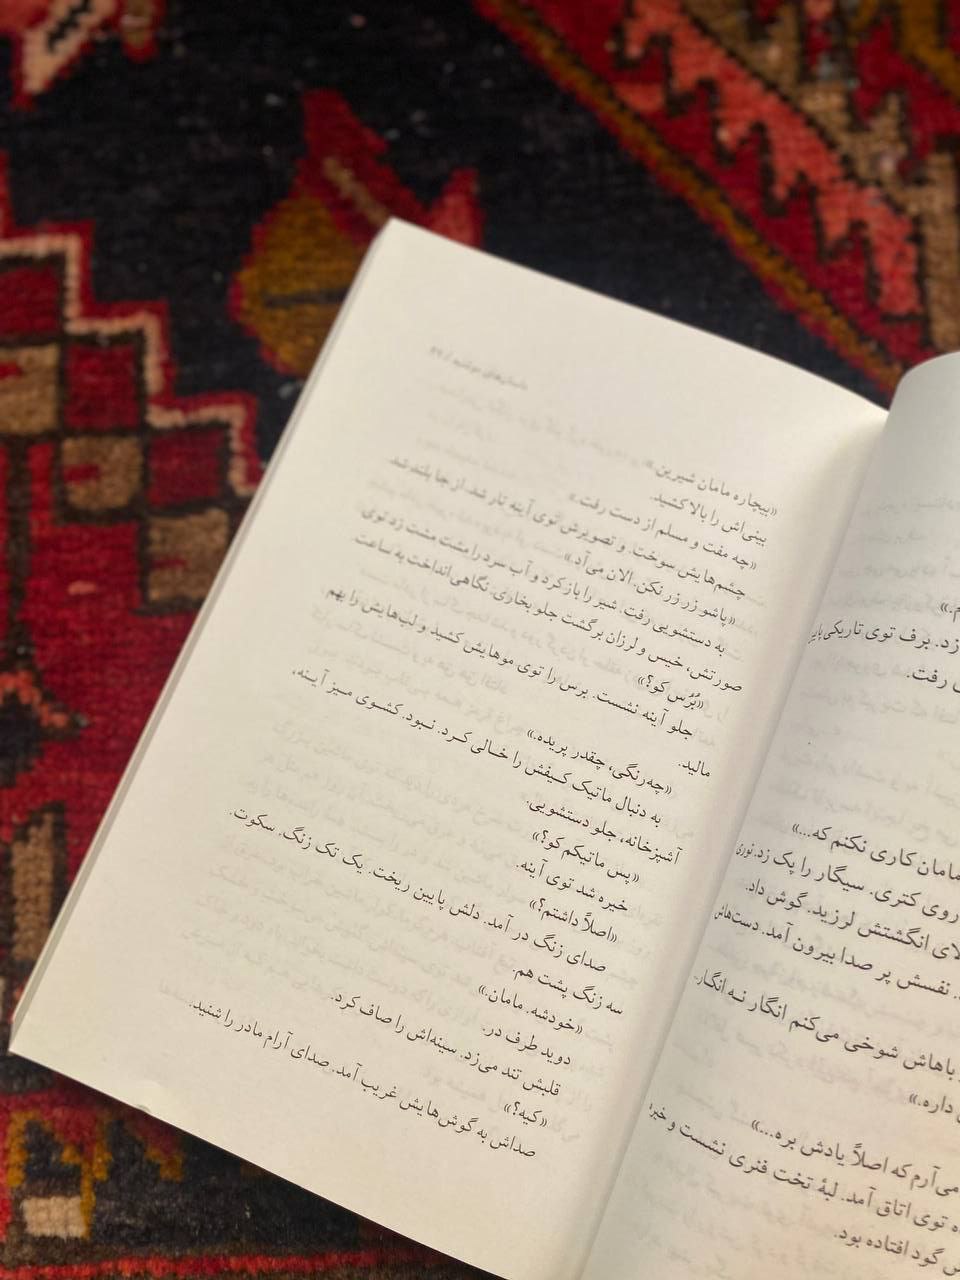 زد. برف توی تاریکی
رفت.
مامان کاری نکنم که...»
روی کتری. سیگار را پک زد. نوری
لای انگشتش لرزید. گوش داد.
نفسش پر صدا بیرون آمد. دست‌هاش
باهاش شوخی می‌کنم انگار نه انگار.
داره.»
می‌آرم که اصلاً یادش بره...»
توی اتاق آمد. لبهٔ تخت فنری نشست و خیره
گود افتاده بود.
«بیچاره مامان شیرین.»
بینی‌اش را بالا کشید.
«چه مفت و مسلم از دست رفت.»
چشم‌هایش سوخت. و تصویرش توی آینه تار شد. از جا بلند شد.
«پاشو زر زر نکن. الان می‌آد.»
به دستشویی رفت. شیر را باز کرد و آب سرد را مشت مشت زد توی
صورتش، خیس و لرزان برگشت جلو بخاری. نگاهی انداخت به ساعت.
«بُرُس کو؟»
جلو آینه نشست. برس را توی موهایش کشید و لب‌هایش را بهم
مالید.
«چه‌رنگی، چقدر پریده.»
به دنبال ماتیک کمیفش را خالی کرد. نبود. کشوی میز آینه،
آشپزخانه، جلو دستشویی.
«پس ماتیکم کو؟»
خیره شد توی آینه.
«اصلاً داشتم؟»
صدای زنگ در آمد. دلش پایین ریخت. یک تک زنگ. سکوت.
سه زنگ پشت هم.
«خودشه. مامان.»
دوید طرف در.
قلبش تند می‌زد. سینه‌اش را صاف کرد.
«کیه؟»
صداش به گوش‌هایش غریب آمد. صدای آرام مادر را شنید.